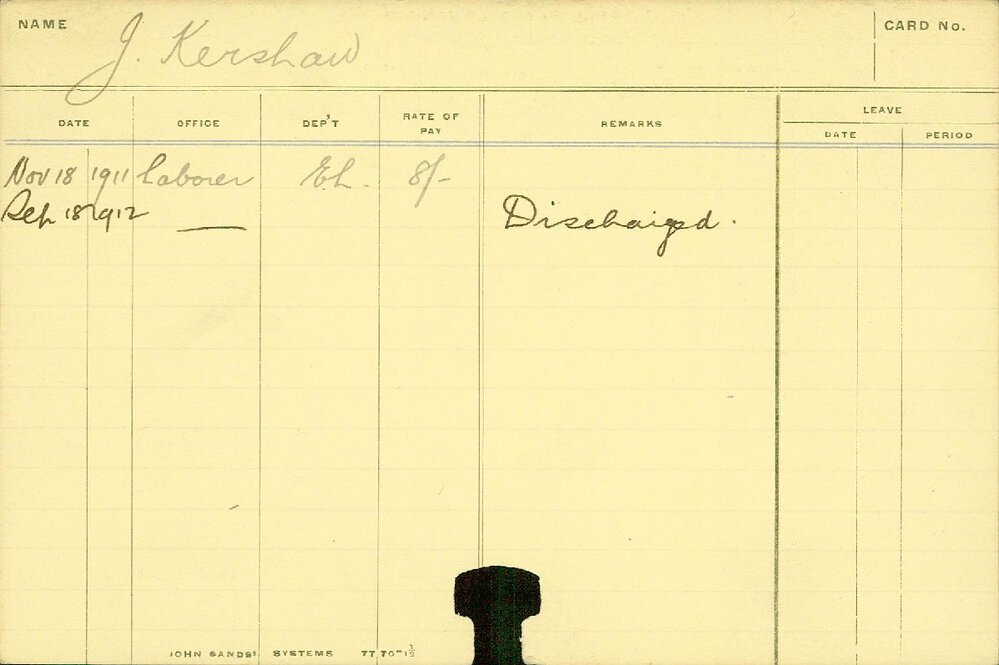 NAME J. Kershaw CARD No.
DATE OFFICE DEP'T RATE OF PAY REMARKS LEAVE
DATE PERIOD
Nov 18 1911 Laborer El. 8/-
Sep 18 1912 — Discharged.
JOHN SANDS' SYSTEMS 7770